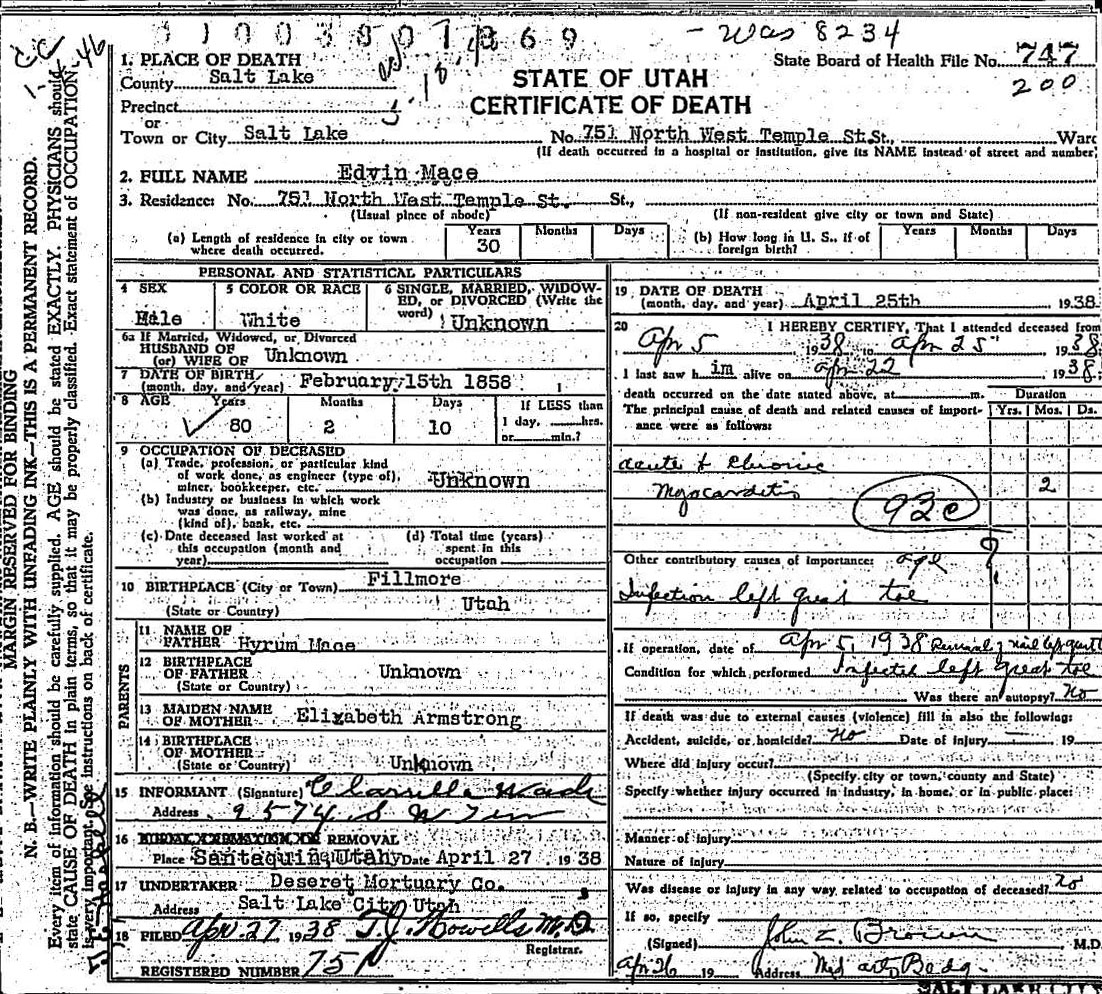 31003801869 - Was 8234
1. PLACE OF DEATH
State Board of Health File No. 747
County Salt Lake
200
STATE OF UTAH
Precinct
CERTIFICATE OF DEATH
or
Town or City Salt Lake No. 751 North West Temple St. St., Ward
(If death occurred in a hospital or institution, give its NAME instead of street and number)
2. FULL NAME Edvin Mace
3. Residence: No. 751 North West Temple St. St.,
(Usual place of abode) (If non-resident give city or town and State)
(a) Length of residence in city or town where death occurred. Years 30 Months Days
(b) How long in U. S., if of foreign birth? Years Months Days
PERSONAL AND STATISTICAL PARTICULARS
4 SEX Male
5 COLOR OR RACE White
6 SINGLE, MARRIED, WIDOWED, or DIVORCED (Write the word) Unknown
6a If Married, Widowed, or Divorced
HUSBAND OF
(or) WIFE OF Unknown
7 DATE OF BIRTH
(month, day, and year) February 15th 1858
8 AGE Years 80 Months 2 Days 10
If LESS than 1 day, hrs. or min.?
9 OCCUPATION OF DECEASED
(a) Trade, profession, or particular kind of work done, as engineer (type of), miner, bookkeeper, etc. Unknown
(b) Industry or business in which work was done, as railway, mine (kind of), bank, etc.
(c) Date deceased last worked at this occupation (month and year)
(d) Total time (years) spent in this occupation
10 BIRTHPLACE (City or Town) Fillmore
(State or Country) Utah
PARENTS
11 NAME OF FATHER Hyrum Mace
12 BIRTHPLACE OF FATHER Unknown
(State or Country)
13 MAIDEN NAME OF MOTHER Elizabeth Armstrong
14 BIRTHPLACE OF MOTHER
(State or Country) Unknown
15 INFORMANT (Signature)
Address
16 BURIAL, CREMATION, OR REMOVAL
Place Santaquin, Utah Date April 27 1938
17 UNDERTAKER Deseret Mortuary Co.
Address Salt Lake City Utah
18 FILED Apr 27 1938 T.J. Howells M.D.
Registrar.
REGISTERED NUMBER 751
19 DATE OF DEATH
(month, day, and year) April 25th 1938
20 I HEREBY CERTIFY, That I attended deceased from
Apr 5 1938 to Apr 25 1938
I last saw him alive on Apr 22 1938
death occurred on the date stated above, at m.
The principal cause of death and related causes of importance were as follows:
Duration
Yrs. Mos. Ds.
Acute & Chronic
Myocarditis 2
92c
Other contributory causes of importance: age ?
Infection left great toe
If operation, date of Apr 5, 1938 Removal of nail left great
Condition for which performed Infected left great toe
Was there an autopsy? No
If death was due to external causes (violence) fill in also the following:
Accident, suicide, or homicide? No Date of injury 19
Where did injury occur?
(Specify city or town, county and State)
Specify whether injury occurred in industry, in home, or in public place:
Manner of injury
Nature of injury
Was disease or injury in any way related to occupation of deceased? No
If so, specify
(Signed) John Z. Brown M.D.
Apr 26 19 Address Med arts Bldg.
SALT LAKE CITY
MARGIN RESERVED FOR BINDING
N. B.—WRITE PLAINLY WITH UNFADING INK—THIS IS A PERMANENT RECORD.
Every item of information should be carefully supplied. AGE should be stated EXACTLY. PHYSICIANS should
state CAUSE OF DEATH in plain terms, so that it may be properly classified. Exact statement of OCCUPATION
is very important. See instructions on back of certificate.